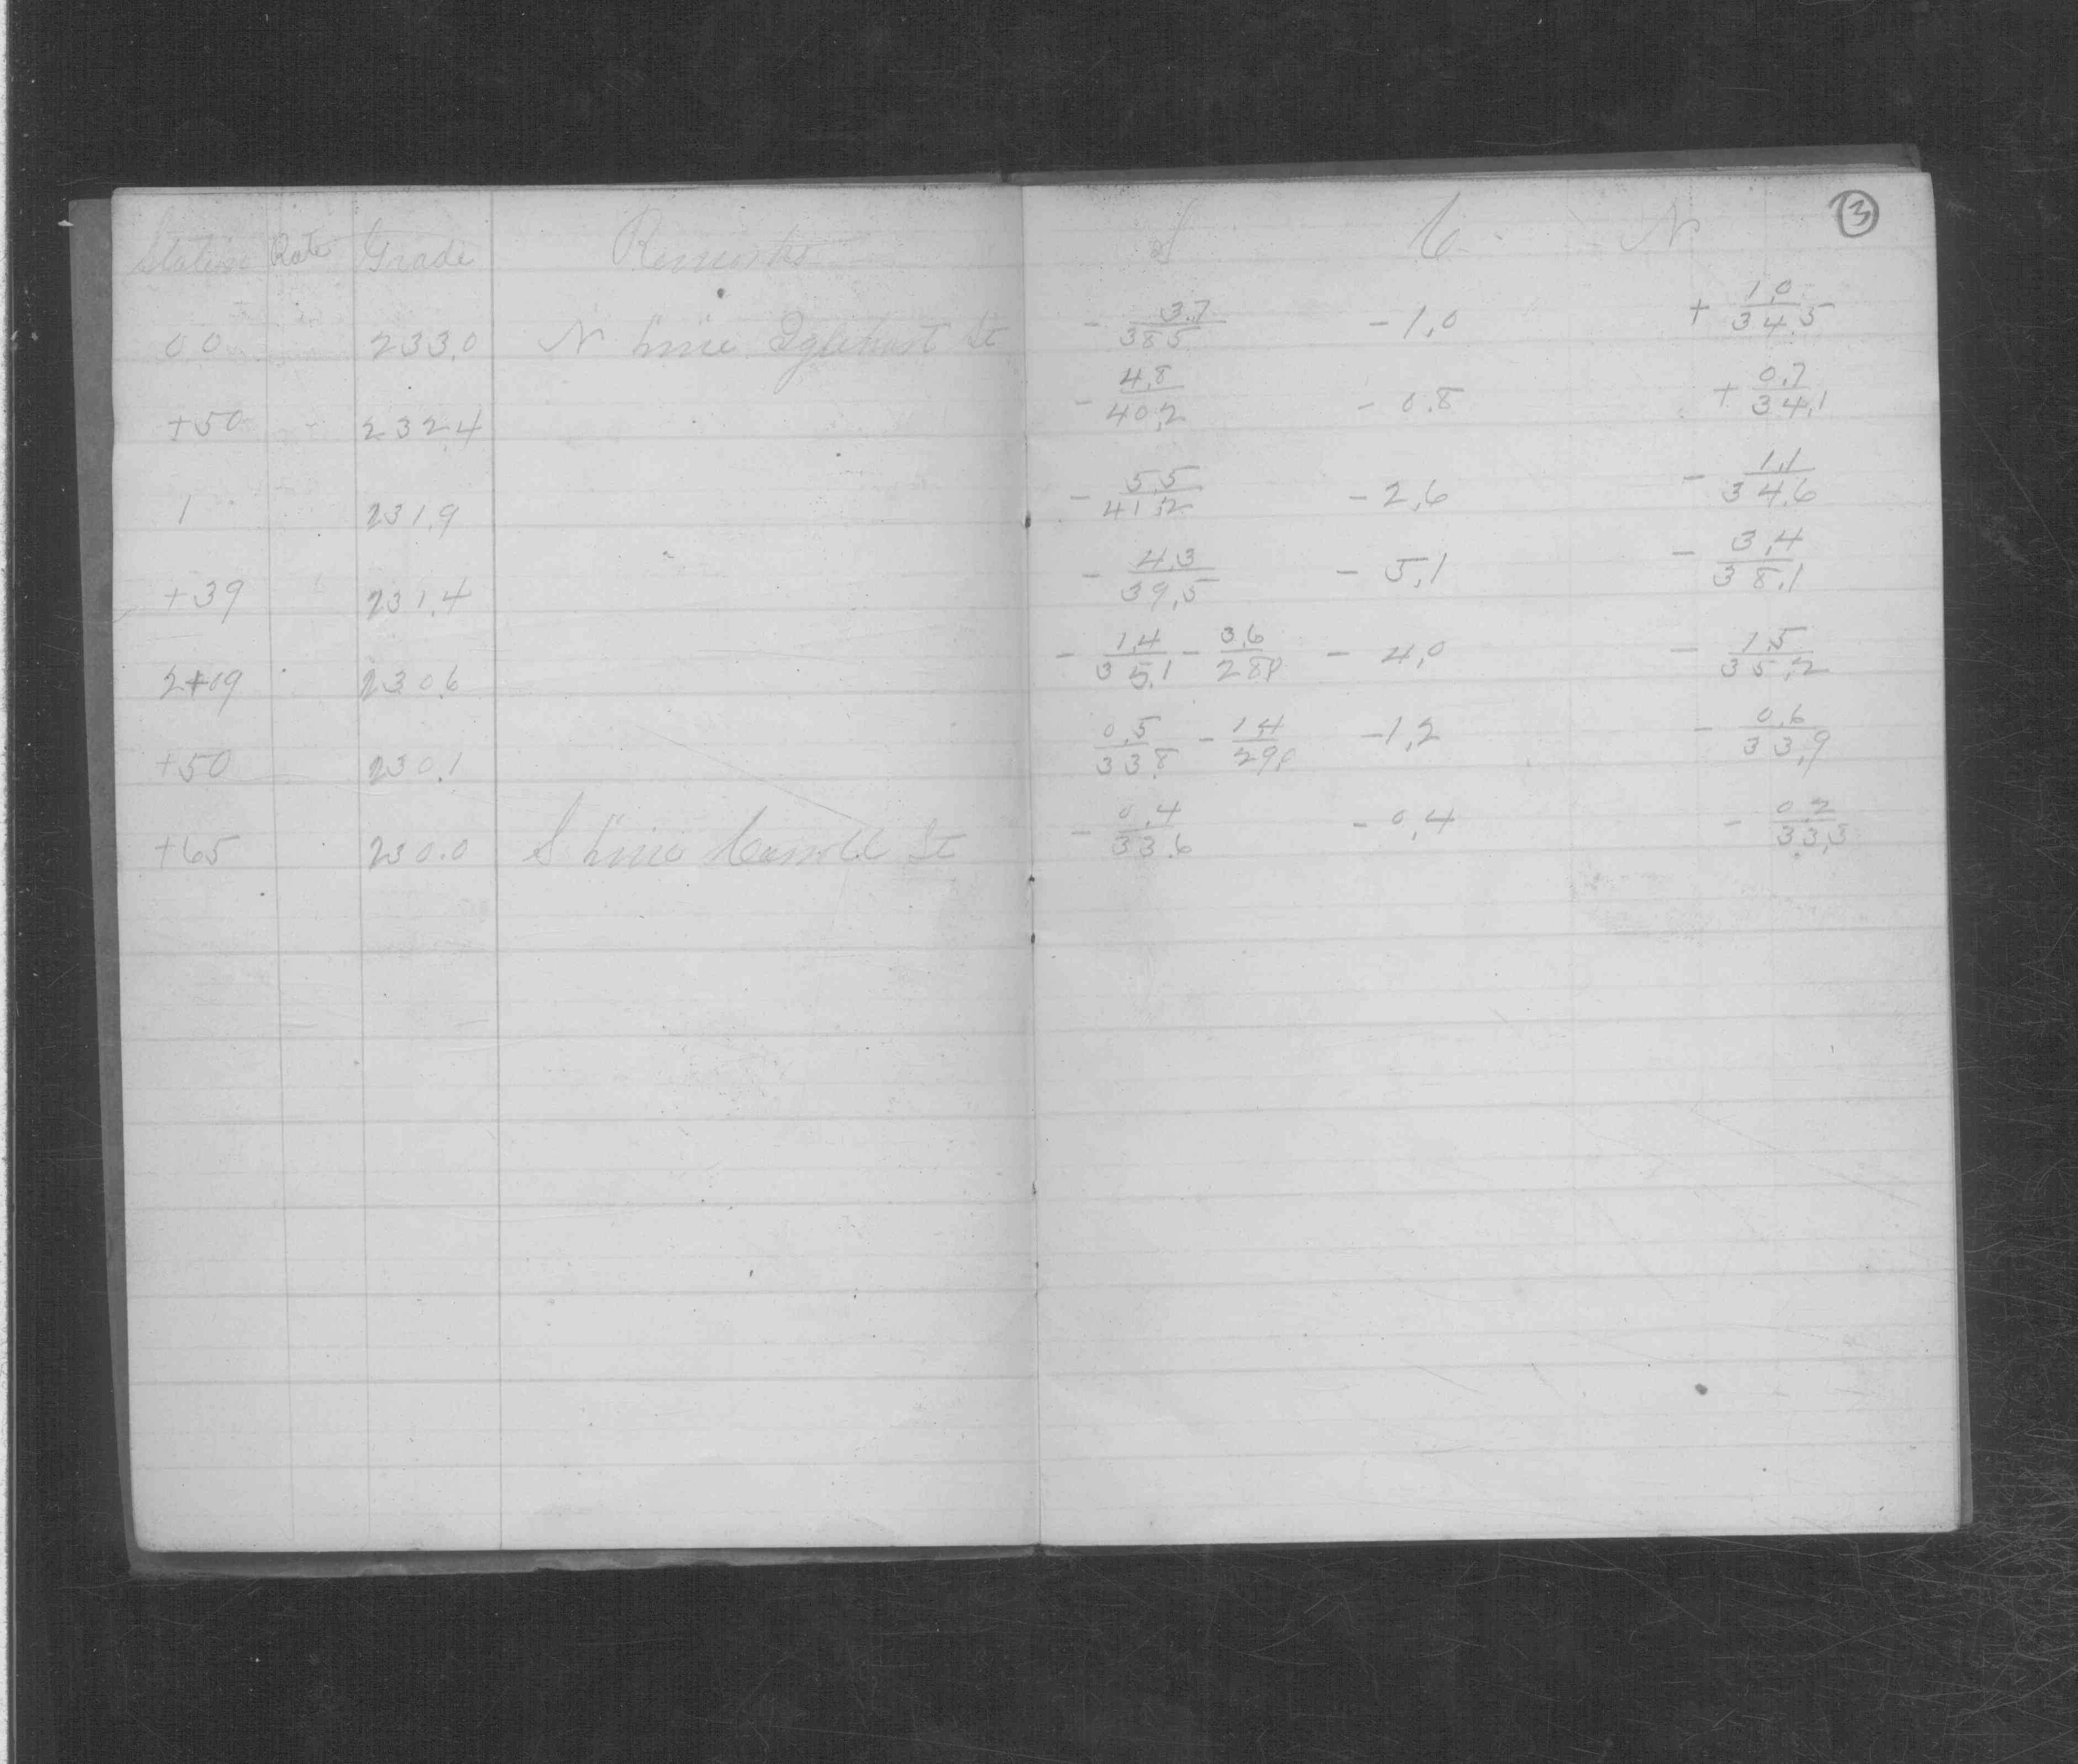 Station Rate Grade Remarks S C N 3
00 233.0 N line Iglehart St - 3.7/38.5 -1.0 + 1.0/34.5
+50 232.4 - 4.8/40.2 -0.8 + 0.7/34.1
1 231.9 - 5.5/41.2 -2.6 - 1.1/34.6
+39 231.4 - 4.3/39.5 -5.1 - 3.4/38.1
2+09 230.6 - 1.4/35.1 - 3.6/28 -4.0 - 1.5/35.2
+50 230.1 0.5/33.8 - 1.4/29 -1.2 - 0.6/33.9
+65 230.0 S line Carroll St - 0.4/33.6 -0.4 - 0.2/33.3